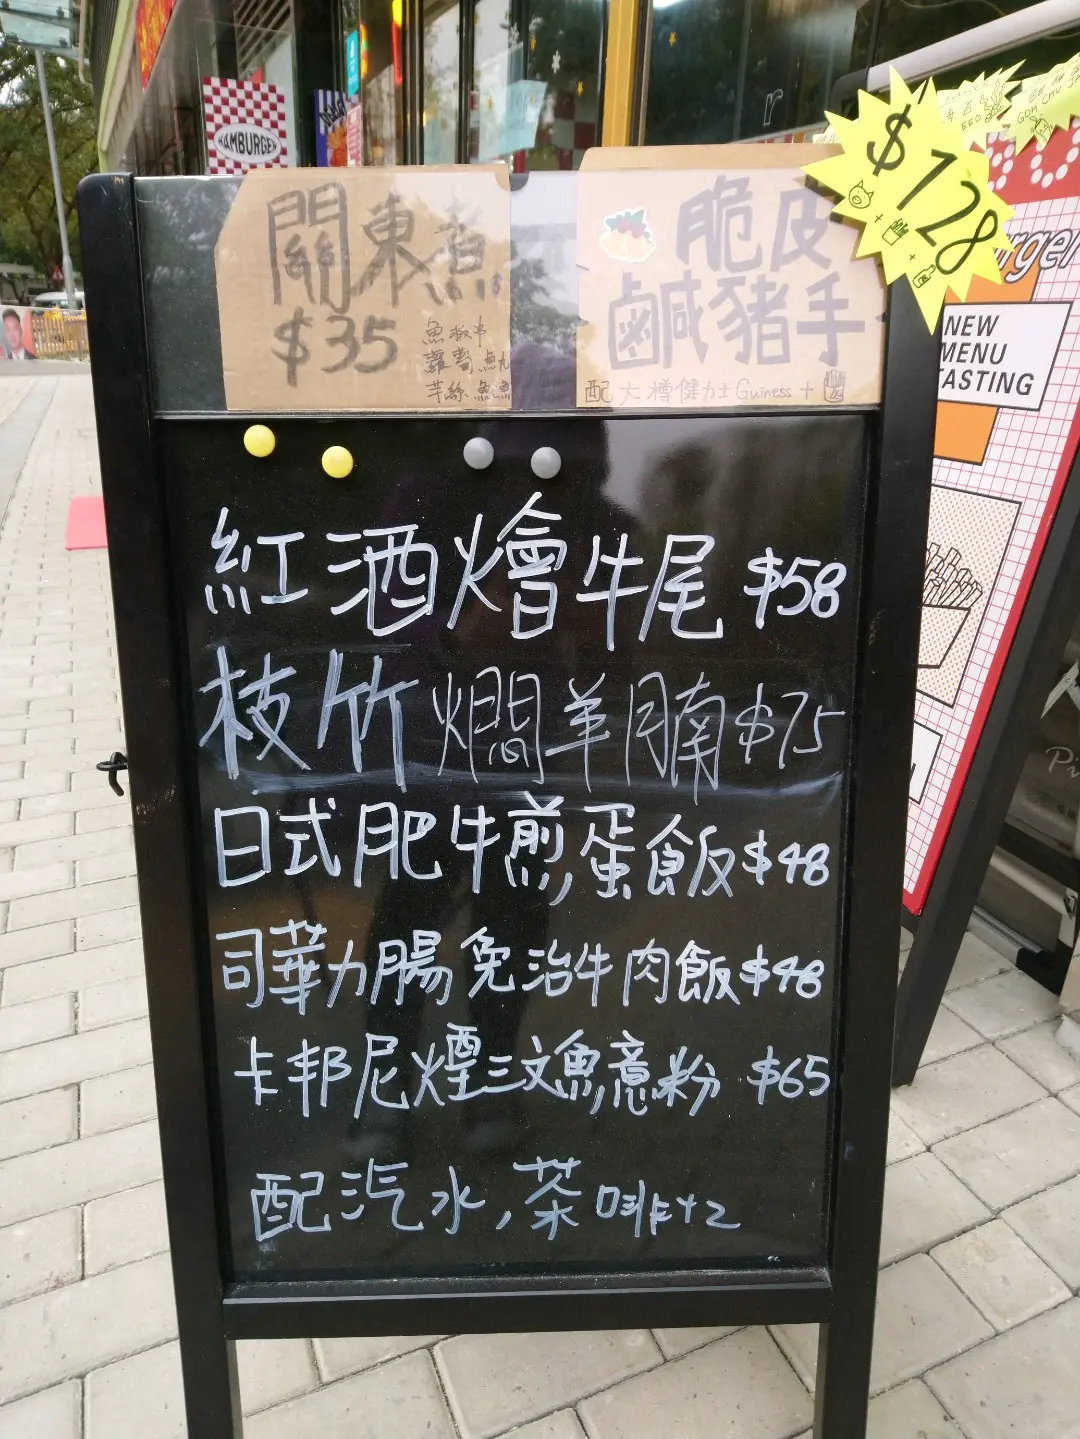 HAMBURGER
關東煮
$35
魚板串
蘿蔔 魷
芋絲
脆皮
鹹豬手
配大樽健力士 Guiness +
$128
+
+
NEW
MENU
TASTING
紅酒燴牛尾 $58
枝竹燜羊腩 $75
日式肥牛煎蛋飯 $48
司華力腸免治牛肉飯 $48
卡邦尼煙三文魚意粉 $65
配汽水,茶啡+2